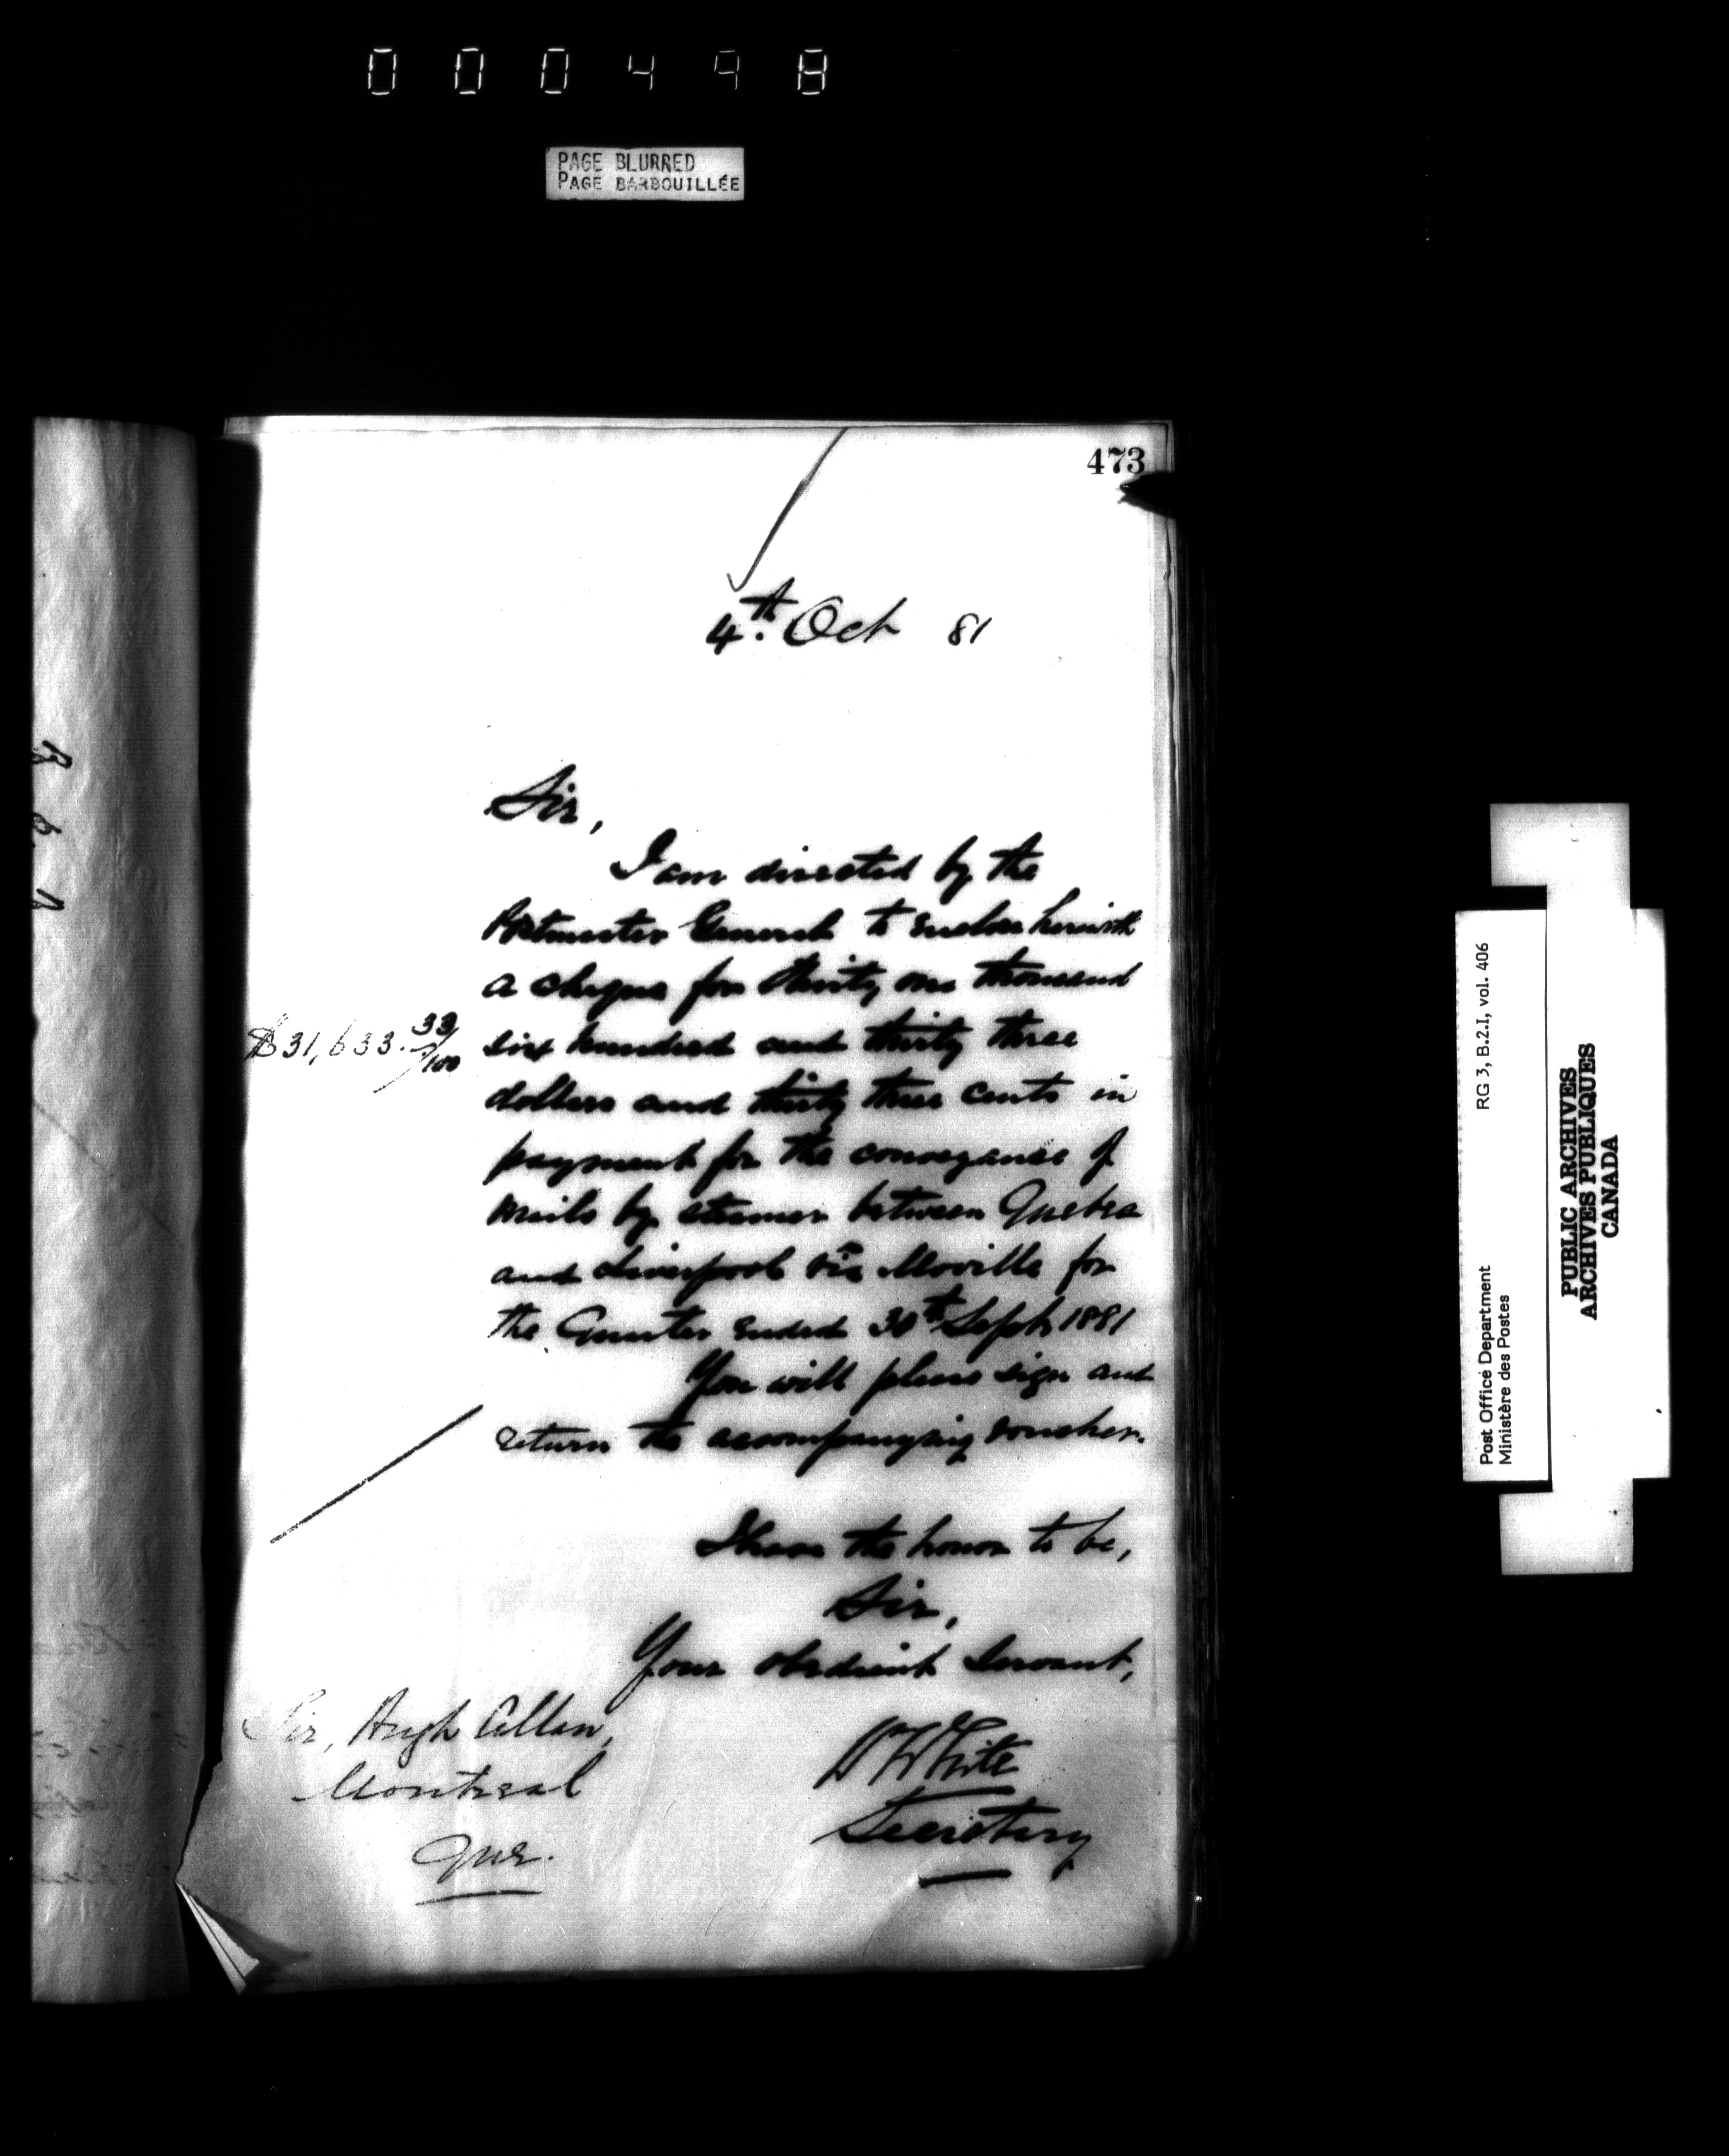 000498
PAGE BLURRED
PAGE BARBOUILLÉE
473
4th. Oct 81
Sir,
I am directed by the
Postmaster General to enclose herewith
a cheque for thirty one thousand
$31,633.33/100 six hundred and thirty three
dollars and thirty three cents in
payment for the conveyance of
mails by steamer between Quebec
and Liverpool via Moville for
the Quarter ended 30th Sept 1881
You will please sign and
return the accompanying voucher.
I have the honor to be,
Sir,
Your obedient Servant,
Sir, Hugh Allan,
Montreal
Que.
W White
Secretary
RG 3, B.2.I, vol. 406
Post Office Department
Ministère des Postes
PUBLIC ARCHIVES
ARCHIVES PUBLIQUES
CANADA